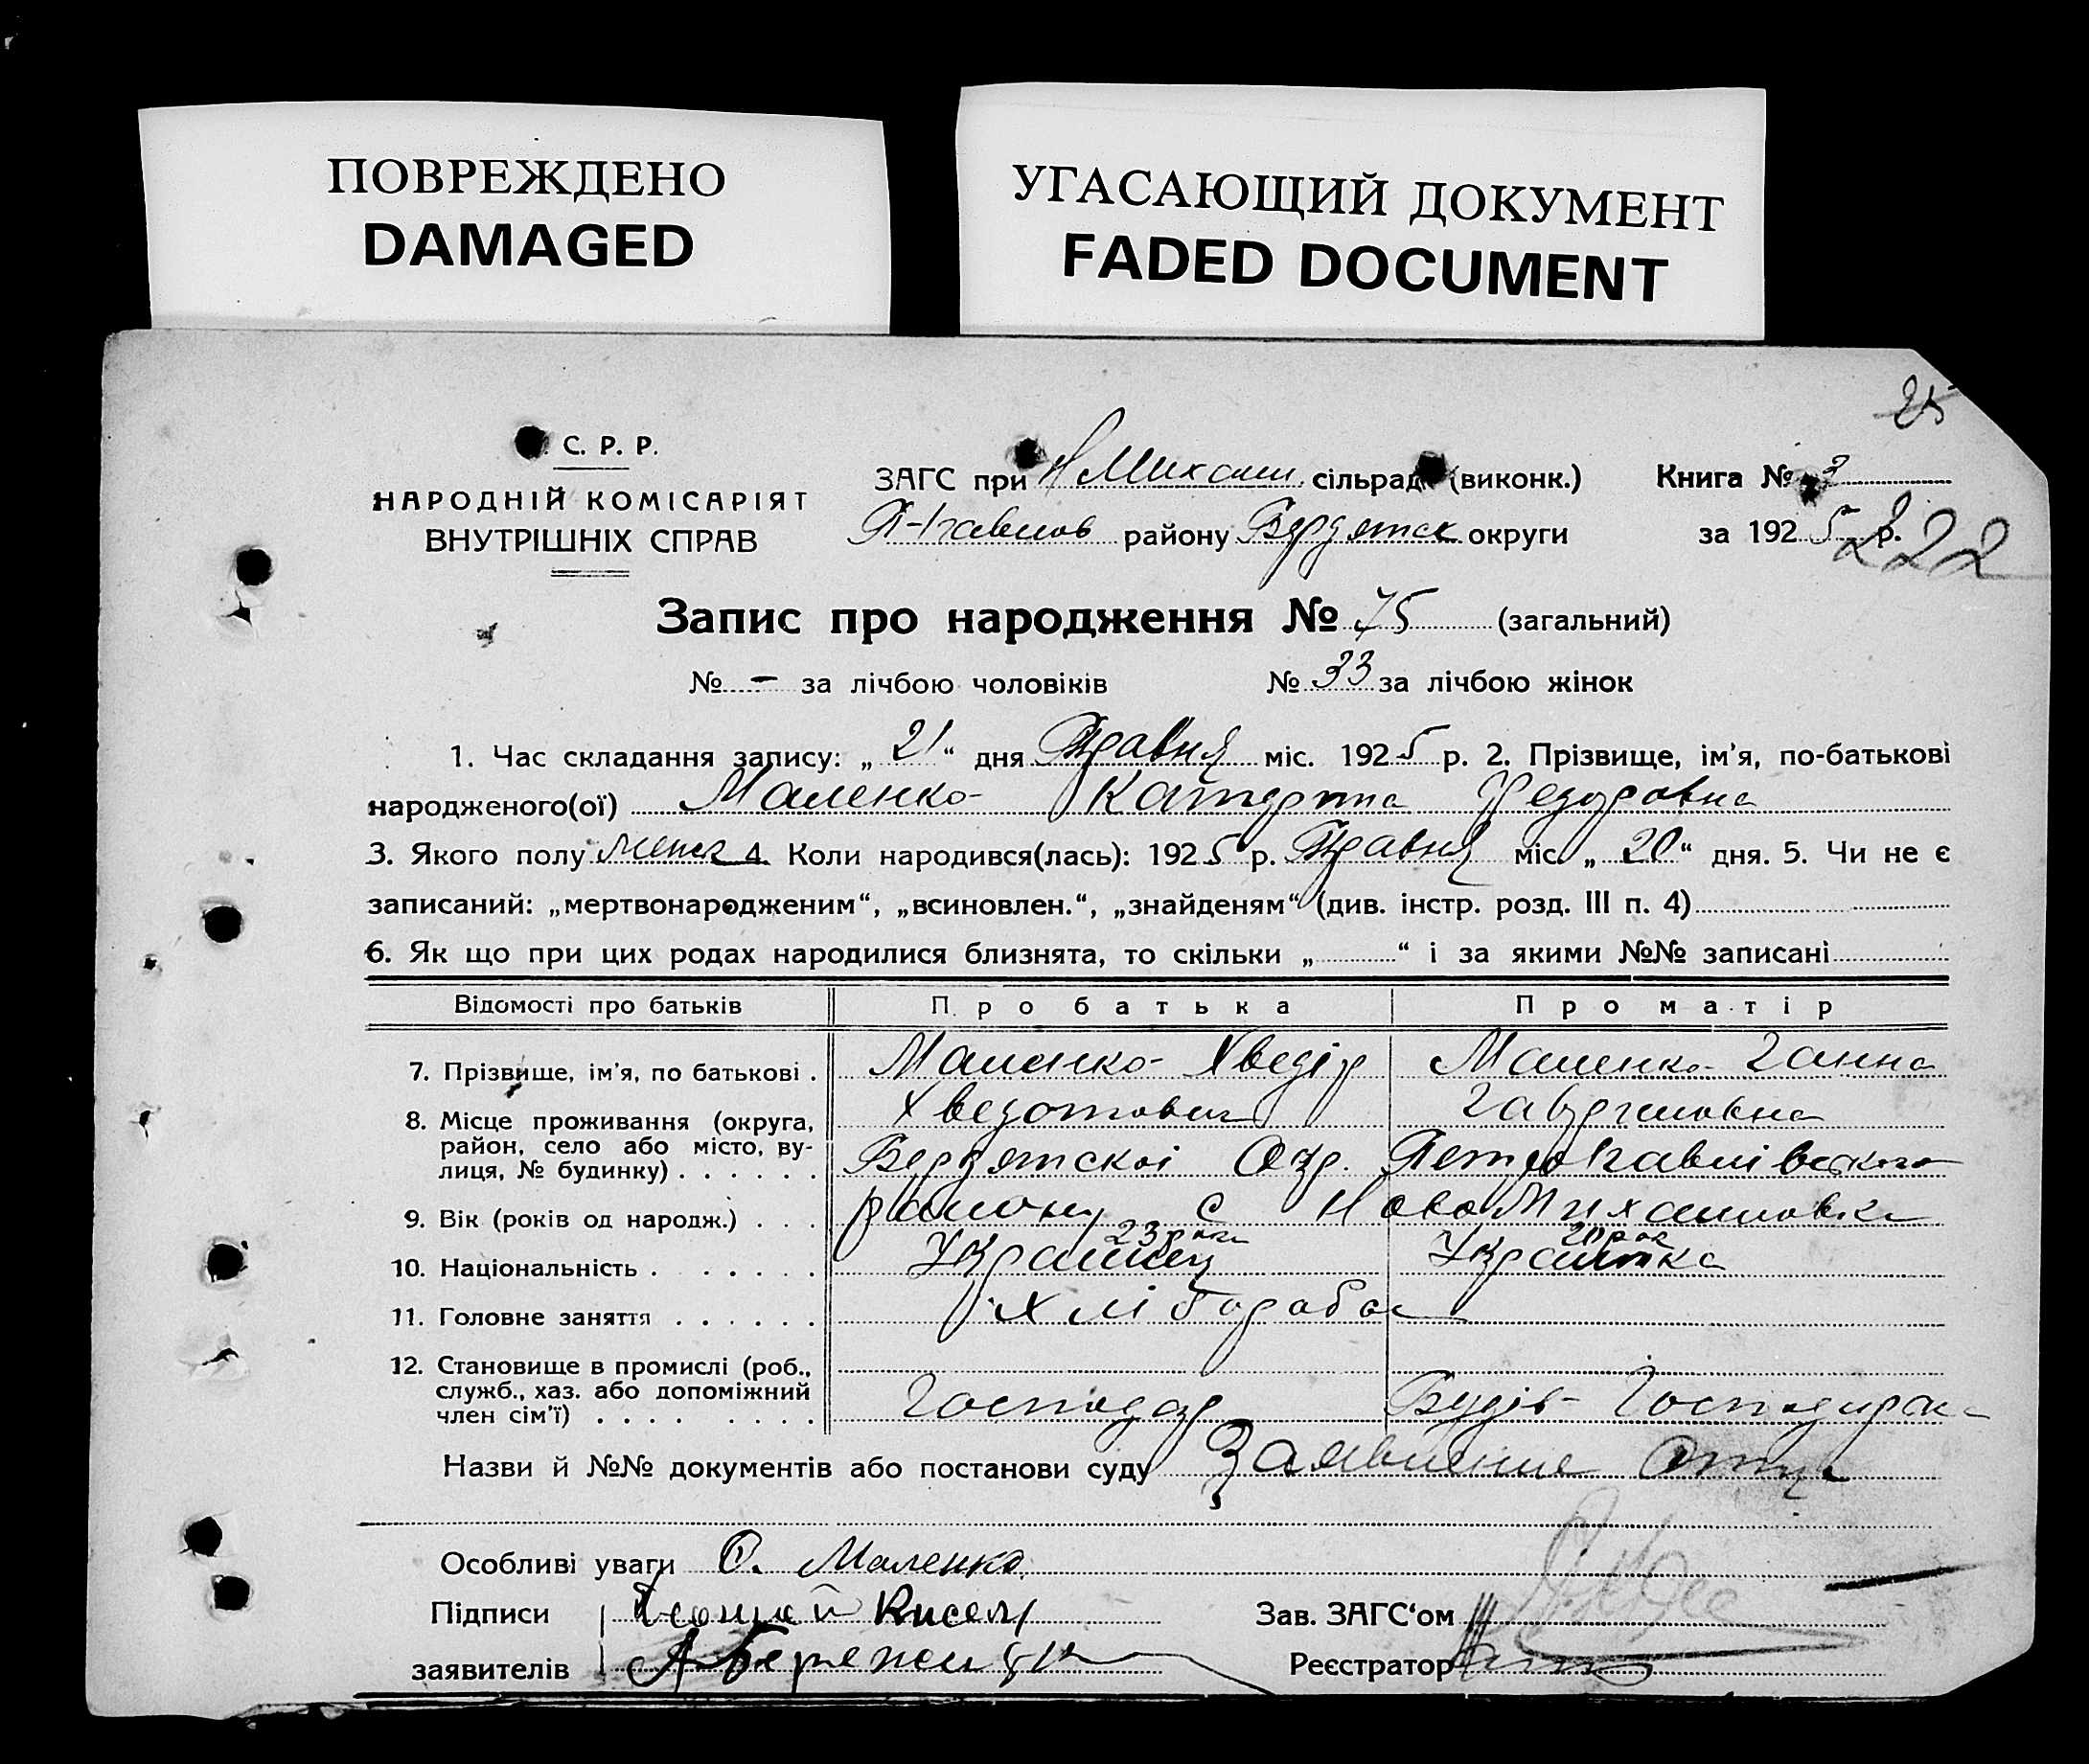 ПОВРЕЖДЕНО
DAMAGED
УГАСАЮЩИЙ ДОКУМЕНТ
FADED DOCUMENT
25
С. Р. Р.
НАРОДНІЙ КОМІСАРІЯТ
ВНУТРІШНІХ СПРАВ
ЗАГС при Н Михайл. сільрад (виконк.)
П-павлов району Бердянск округи
Книга № 3
за 1925 р.
222
Запис про народження № 75 (загальний)
№ – за лічбою чоловіків № 33 за лічбою жінок
1. Час складання запису: „21“ дня Травня міс. 1925 р. 2. Прізвище, ім'я, по-батькові
народженого(ої) Маленко Катерина Федоровна
3. Якого полу 4. Коли народився(лась): 1925 р. Травня міс. „20“ дня. 5. Чи не є
записаний: „мертвонародженим“, „всиновлен.“, „знайденям“ (див. інстр. розд. III п. 4)
6. Як що при цих родах народилися близнята, то скільки „ “ і за якими №№ записані
Відомості про батьків Про батька Про матір
7. Прізвище, ім'я, по батькові . Маленко Хведір Маленко Ганна
Хведотович Гавриловна
8. Місце проживання (округа, район, село або місто, вулиця, № будинку) . . . . . . Бердянскої Окр. Петропавлівского
9. Вік (років од народж.) . . . району с Ново Михайловка
23 роки 20 рок
10. Національність . . . . . . Украінец Украінка
11. Головне заняття . . . . . . Хлібороба
12. Становище в промислі (роб., служб., хаз. або допоміжний член сім'ї) . . . . . . . . Господар Господирка
Назви й №№ документів або постанови суду Заявление Отца
Особливі уваги Ф. Маленко
Підписи Кисель
заявителів
Зав. ЗАГС'ом
Реєстратор